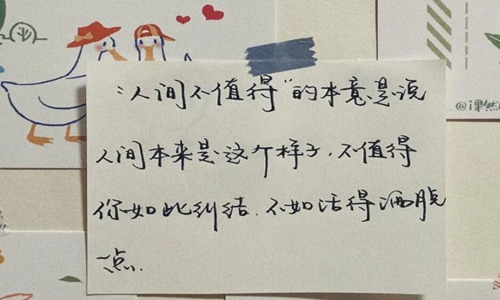 “人间不值得”的本意是说
人间本来是这个样子，不值得
你如此纠结．不如活得洒脱
一点．
@课然